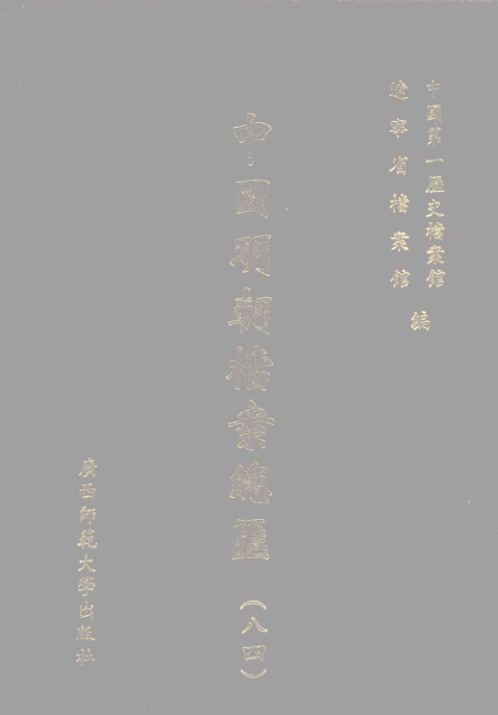 中國第一歷史檔案館
遼寧省檔案館
編
中國明朝檔案總匯
(八四)
廣西師範大學出版社